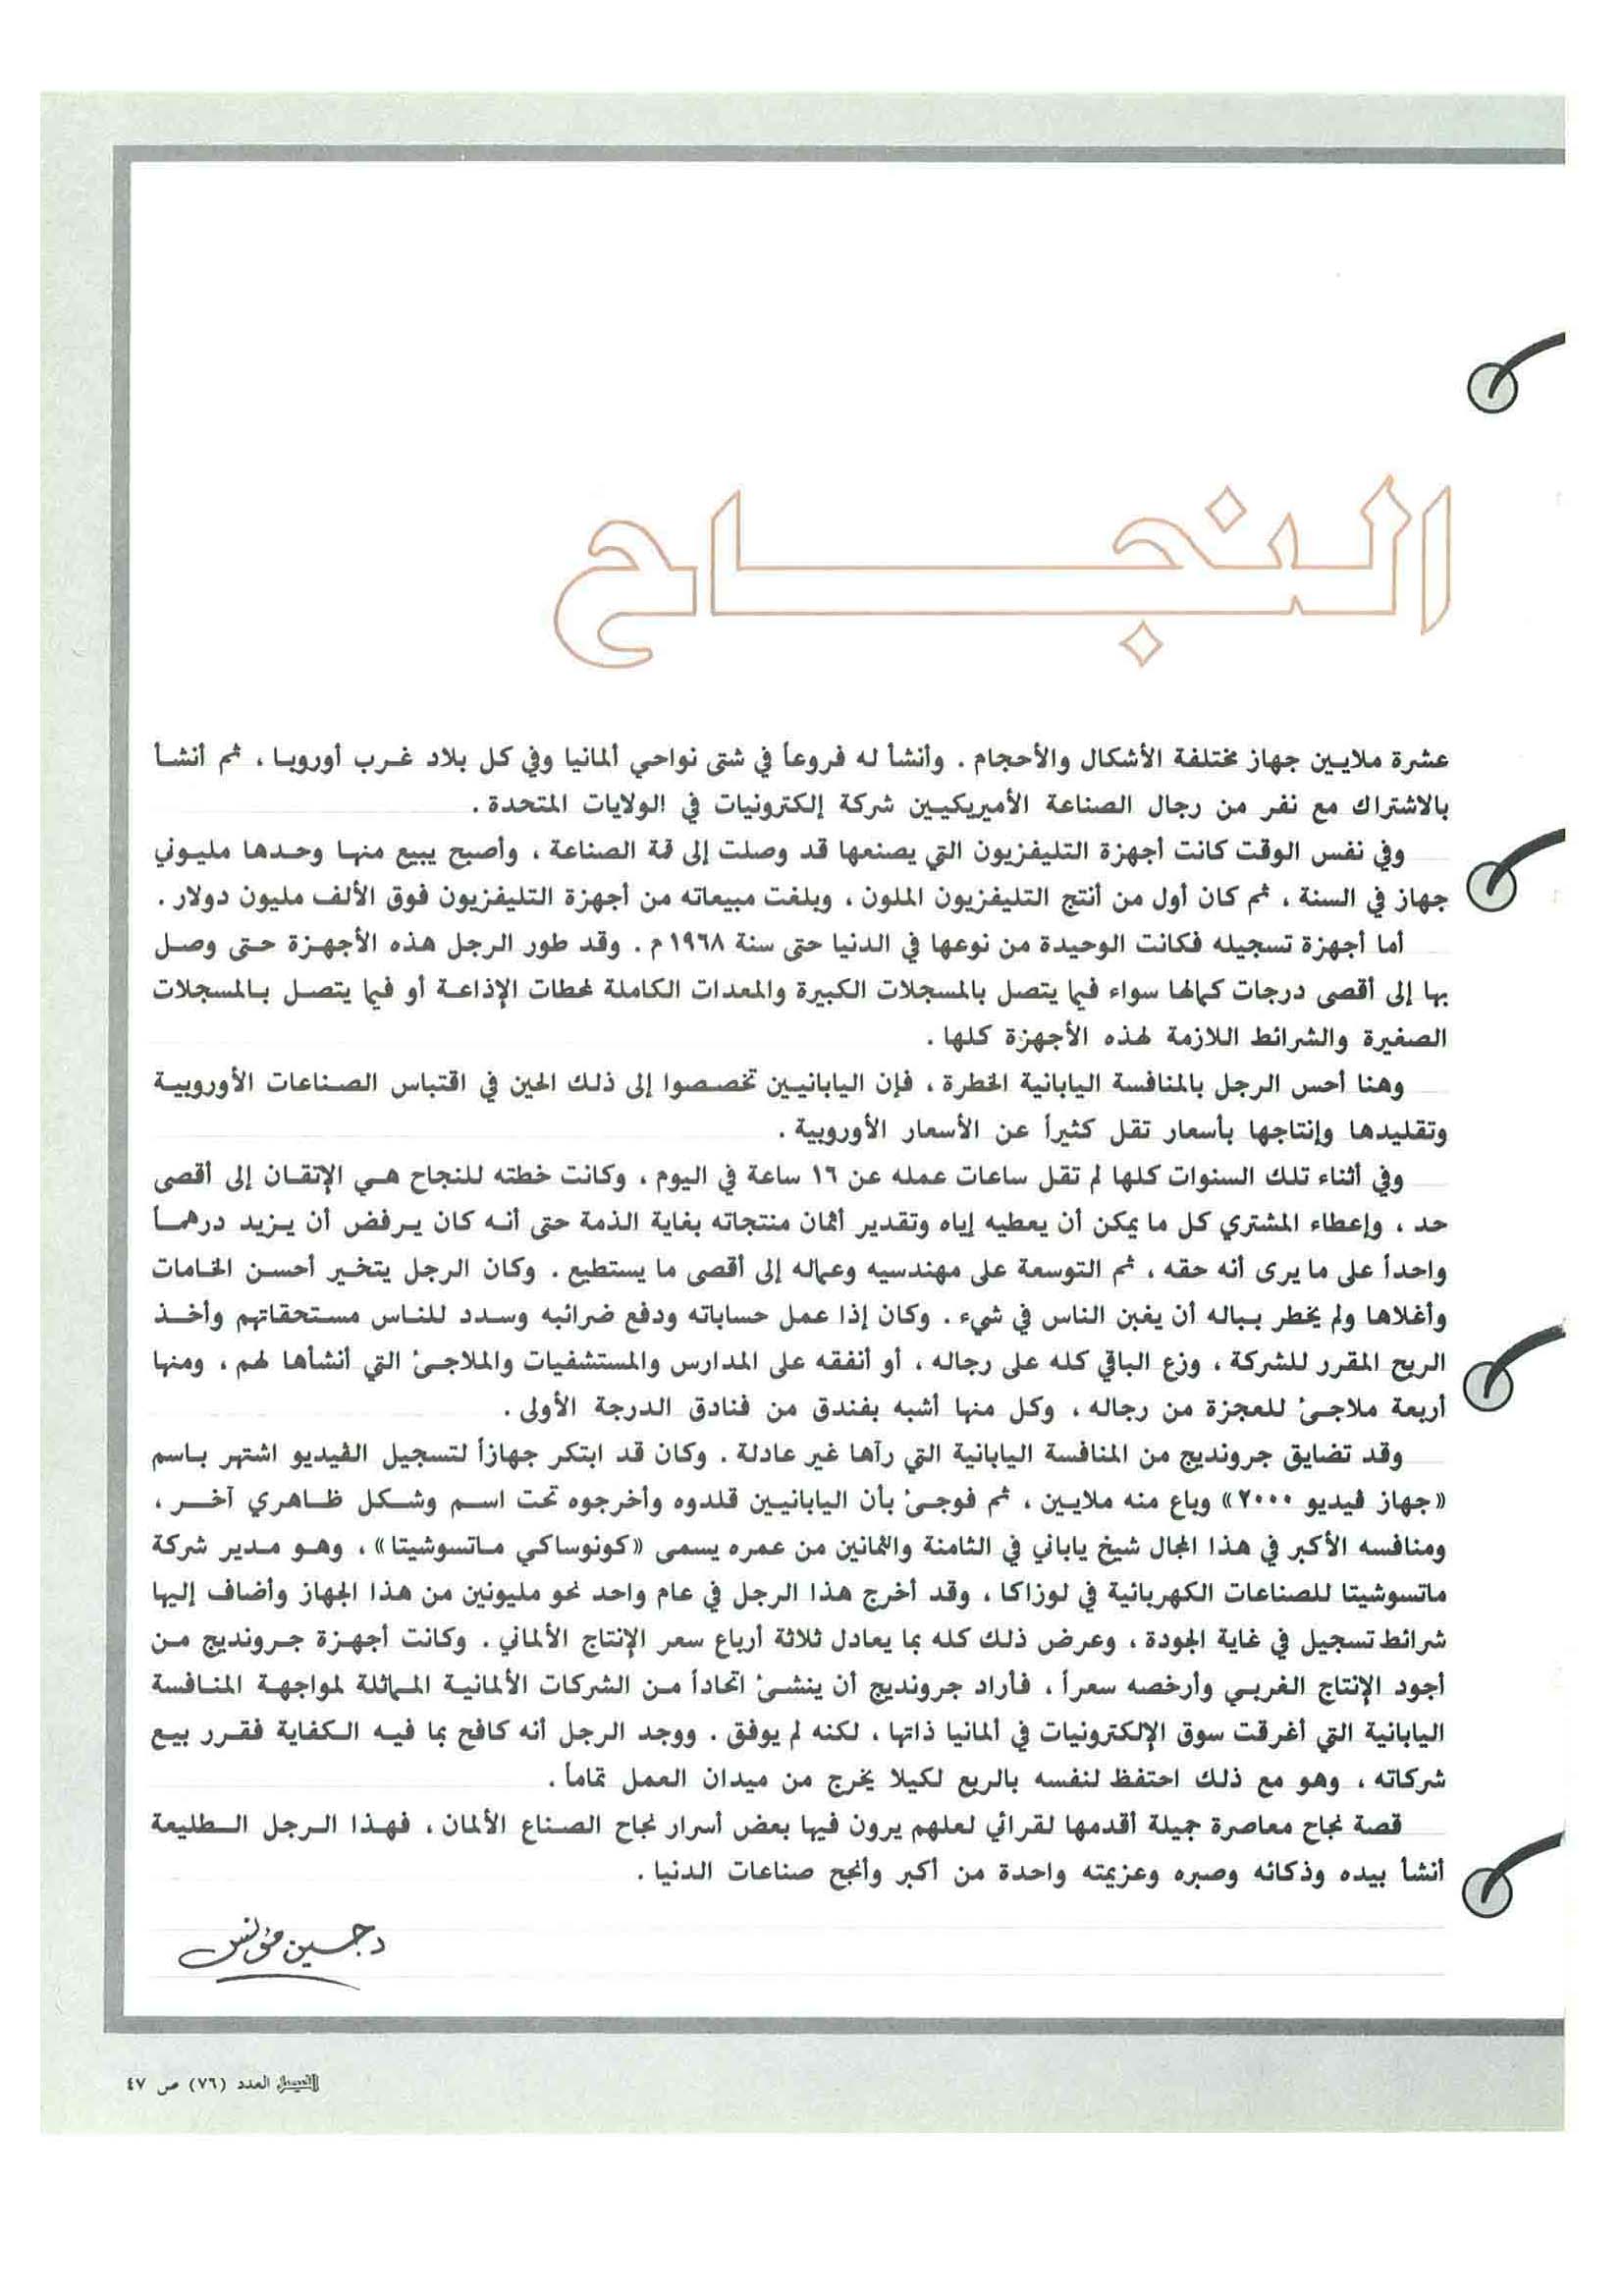 النجاح
عشرة ملايين جهاز مختلفة الأشكال والأحجام . وأنشأ له فروعاً في شتى نواحي ألمانيا وفي كل بلاد غرب أوروبا ، ثم أنشأ
بالاشتراك مع نفر من رجال الصناعة الأميريكيين شركة إلكترونيات في الولايات المتحدة .
وفي نفس الوقت كانت أجهزة التليفزيون التي يصنعها قد وصلت إلى قمة الصناعة ، وأصبح يبيع منها وحدها مليوني
جهاز في السنة ، ثم كان أول من أنتج التليفزيون الملون ، وبلغت مبيعاته من أجهزة التليفزيون فوق الألف مليون دولار .
أما أجهزة تسجيله فكانت الوحيدة من نوعها في الدنيا حتى سنة ١٩٦٨ م . وقد طور الرجل هذه الأجهزة حتى وصل
بها إلى أقصى درجات كمالها سواء فيما يتصل بالمسجلات الكبيرة والمعدات الكاملة لمحطات الإذاعة أو فيما يتصل بالمسجلات
الصغيرة والشرائط اللازمة لهذه الأجهزة كلها .
وهنا أحس الرجل بالمنافسة اليابانية الخطرة ، فإن اليابانيين تخصصوا إلى ذلك الحين في اقتباس الصناعات الأوروبية
وتقليدها وإنتاجها بأسعار تقل كثيراً عن الأسعار الأوروبية .
وفي أثناء تلك السنوات كلها لم تقل ساعات عمله عن ١٦ ساعة في اليوم ، وكانت خطته للنجاح هي الإتقان إلى أقصى
حد ، وإعطاء المشتري كل ما يمكن أن يعطيه إياه وتقدير أثمان منتجاته بغاية الذمة حتى أنه كان يرفض أن يزيد درهماً
واحداً على ما يرى أنه حقه ، ثم التوسعة على مهندسيه وعماله إلى أقصى ما يستطيع . وكان الرجل يتخير أحسن الخامات
وأغلاها ولم يخطر بباله أن يغبن الناس في شيء . وكان إذا عمل حساباته ودفع ضرائبه وسدد للناس مستحقاتهم وأخذ
الربح المقرر للشركة ، وزع الباقي كله على رجاله ، أو أنفقه على المدارس والمستشفيات والملاجئ التي أنشأها لهم ، ومنها
أربعة ملاجئ للعجزة من رجاله ، وكل منها أشبه بفندق من فنادق الدرجة الأولى .
وقد تضايق جرونديج من المنافسة اليابانية التي رآها غير عادلة . وكان قد ابتكر جهازاً لتسجيل الڤيديو اشتهر باسم
«جهاز ڤيديو ٢٠٠٠» وباع منه ملايين ، ثم فوجئ بأن اليابانيين قلدوه وأخرجوه تحت اسم وشكل ظاهري آخر ،
ومنافسه الأكبر في هذا المجال شيخ ياباني في الثامنة والثمانين من عمره يسمى «كونوساكي ماتسوشيتا» ، وهو مدير شركة
ماتسوشيتا للصناعات الكهربائية في لوزاكا ، وقد أخرج هذا الرجل في عام واحد نحو مليونين من هذا الجهاز وأضاف إليها
شرائط تسجيل في غاية الجودة ، وعرض ذلك كله بما يعادل ثلاثة أرباع سعر الإنتاج الألماني . وكانت أجهزة جرونديج من
أجود الإنتاج الغربي وأرخصه سعراً ، فأراد جرونديج أن ينشئ اتحاداً من الشركات الألمانية المماثلة لمواجهة المنافسة
اليابانية التي أغرقت سوق الإلكترونيات في ألمانيا ذاتها ، لكنه لم يوفق . ووجد الرجل أنه كافح بما فيه الكفاية فقرر بيع
شركاته ، وهو مع ذلك احتفظ لنفسه بالربع لكيلا يخرج من ميدان العمل تماماً .
قصة نجاح معاصرة جميلة أقدمها لقرائي لعلهم يرون فيها بعض أسرار نجاح الصناع الألمان ، فهذا الرجل الطليعة
أنشأ بيده وذكائه وصبره وعزيمته واحدة من أكبر وأنجح صناعات الدنيا .
د. حسين مؤنس
الفيصل العدد (٧٦) ص ٤٧